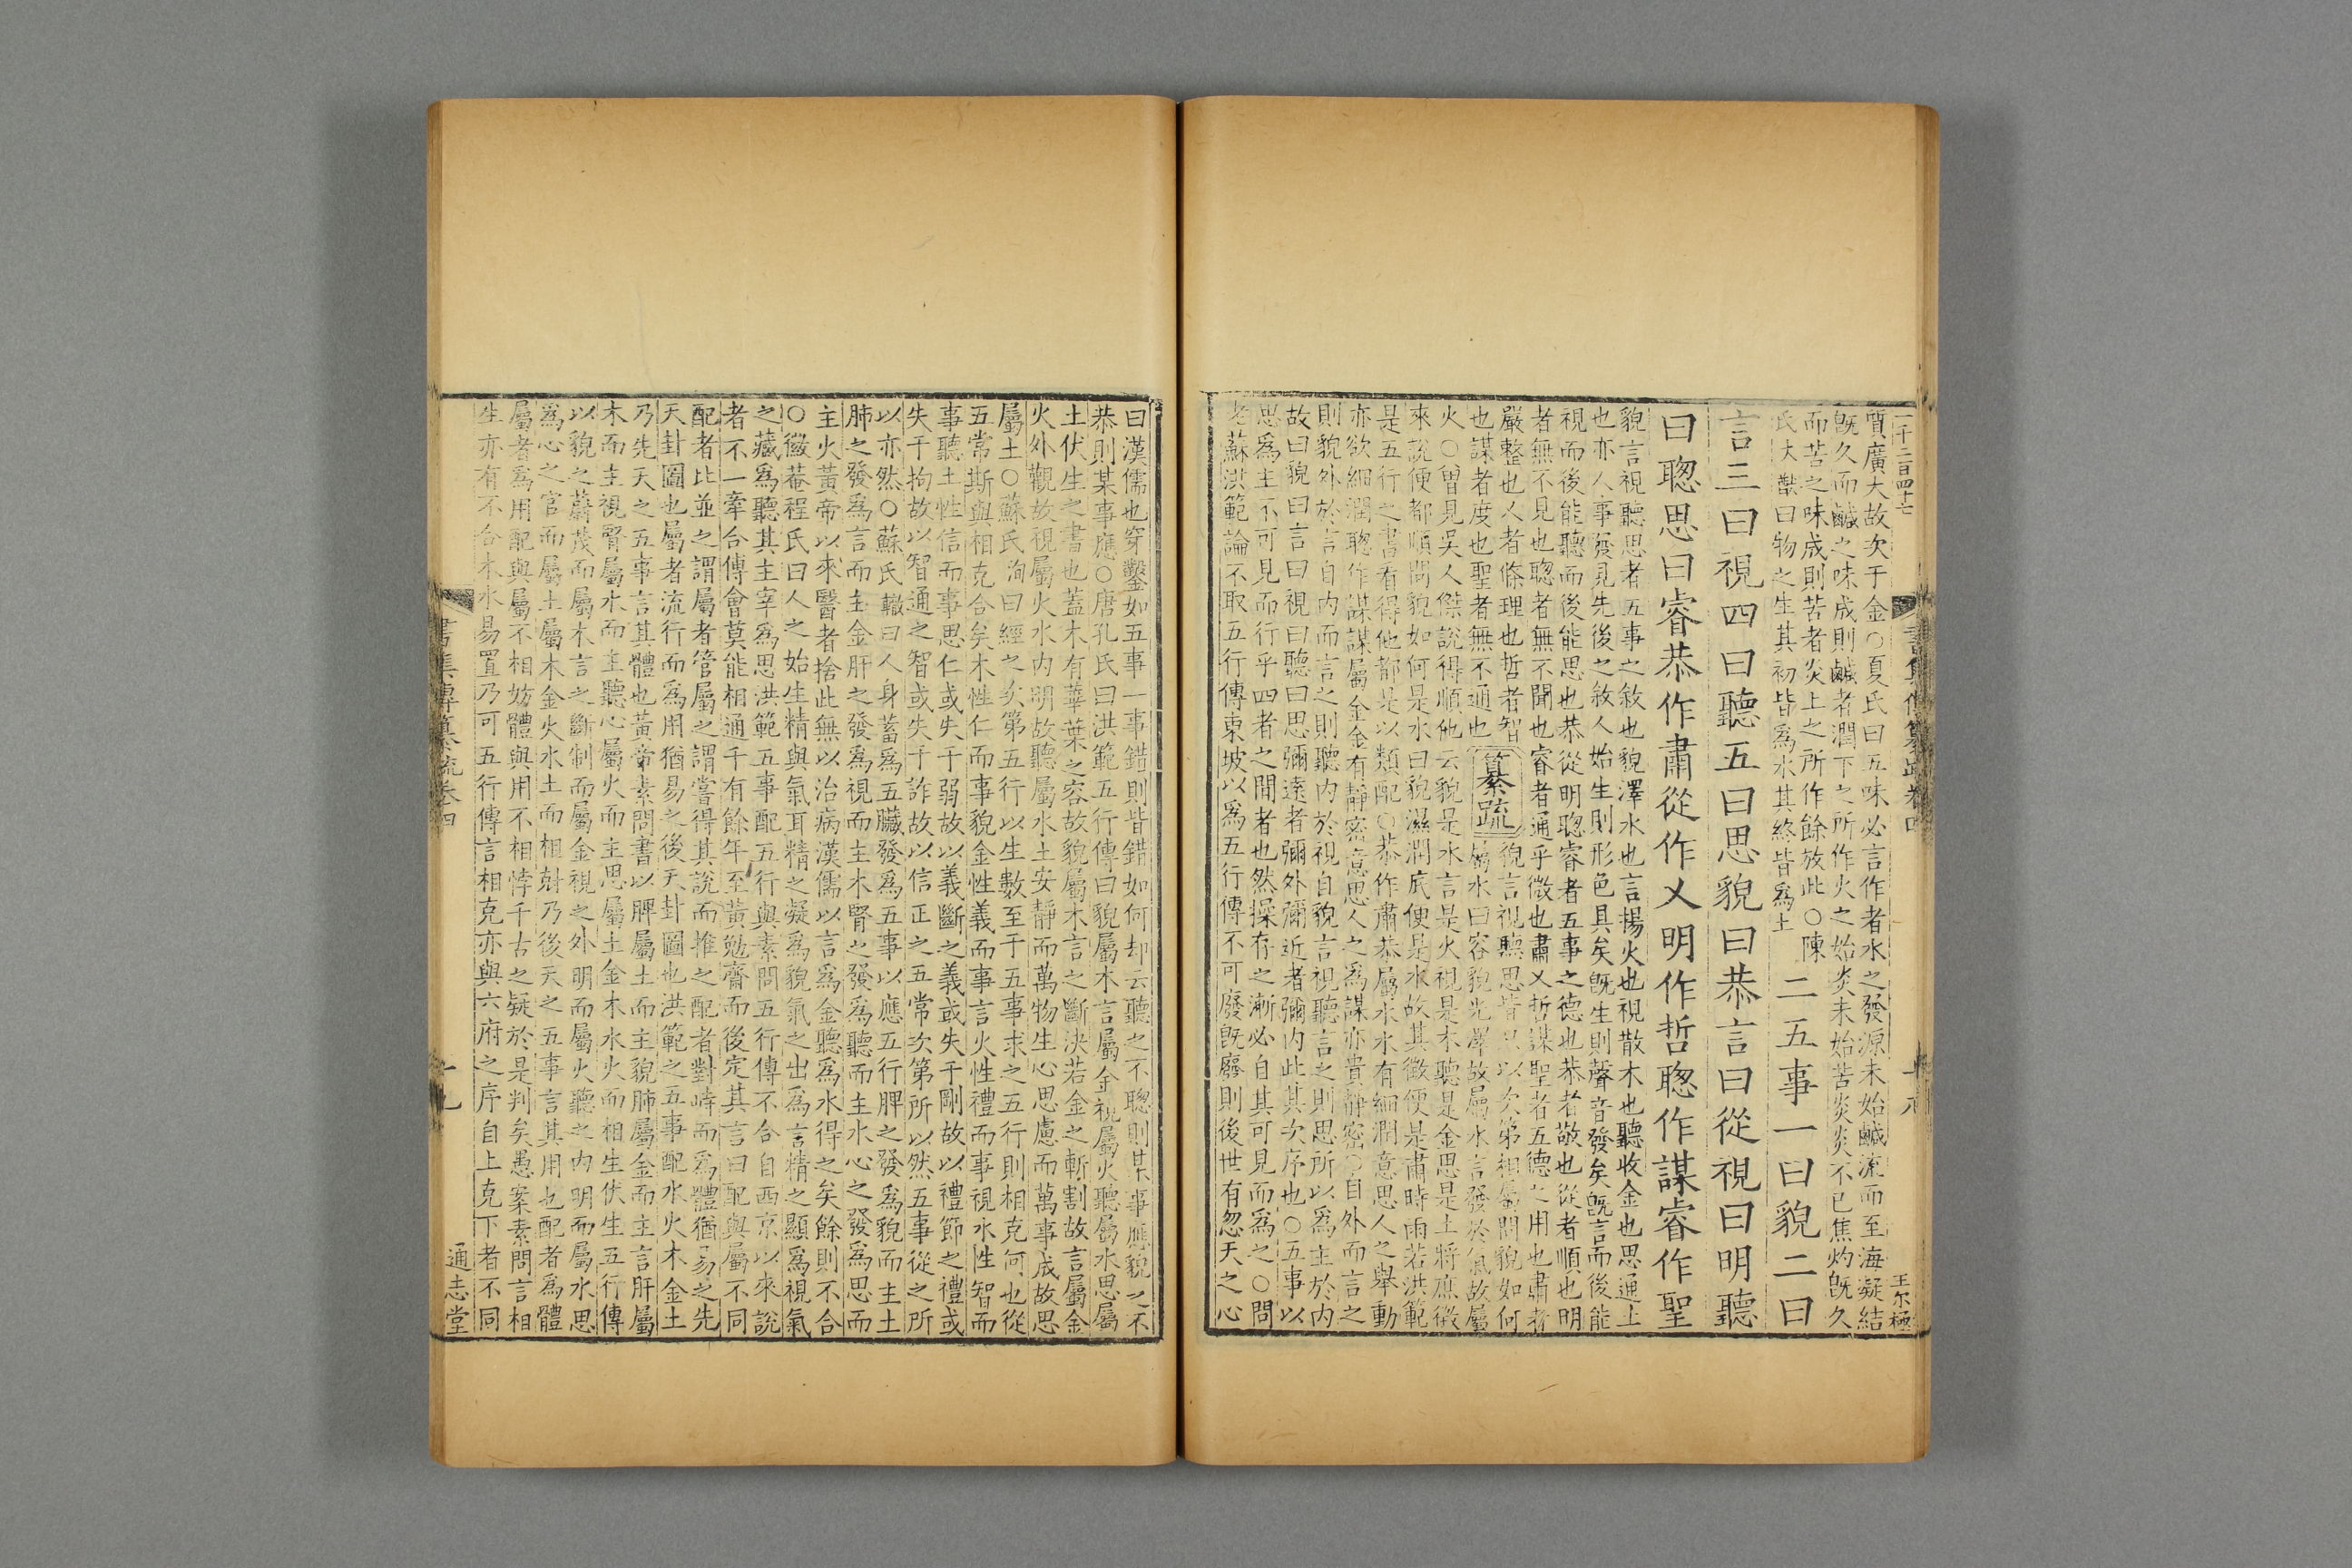 質廣大故次于金○夏氏曰五味必言作者水之發源未始鹹流而至海凝結
旣久而鹹之味成則鹹者潤下之所作火之始炎未始苦炎炎不已焦灼旣久
而苦之味成則苦者炎上之所作餘放此○陳
氏大猷曰物之生其初皆爲水其終皆爲土
二五事一曰貌二曰
言三曰視四曰聽五曰思貌曰恭言曰從視曰明聽
曰聦思曰睿恭作肅從作乂明作哲聦作謀睿作聖
貌言視聽思者五事之敘也貌澤水也言揚火也視散木也聽收金也思通土
也亦人事發見先後之敘人始生則形色具矣旣生則聲音發矣旣言而後能
視而後能聽而後能思也恭從明聦睿者五事之德也恭者敬也從者順也明
者無不見也聦者無不聞也睿者通乎微也肅乂哲謀聖者五德之用也肅者
嚴整也乂者條理也哲者智
也謀者度也聖者無不通也
纂疏
貌言視聽思皆只以次第相屬問貌如何
屬水曰容貌光澤故屬水言發於氣故屬
火○曾見吳人傑說得順他云貌是水言是火視是木聽是金思是土將庶徵
來說便都順問貌如何是水曰貌濕潤底便是水故其徵便是肅時雨若洪範
是五行之書看得他都是以類配○恭作肅恭屬水水有細潤意思人之舉動
亦欲細潤聦作謀謀屬金金有靜密意思人之爲謀亦貴靜密○自外而言之
則貌外於言自内而言之則聽内於視自貌言視聽言之則思所以爲主於内
故曰貌曰言曰視曰聽曰思彌遠者彌外彌近者彌内此其次序也○五事以
思爲主不可見而行乎四者之間者也然操存之漸必自其可見而爲之○問
老蘇洪範論不取五行傳東坡以爲五行傳不可廢旣廢則後世有忽天之心
一千二百四十七
書集傳纂疏卷四
十八
王尔極
曰漢儒也穿鑿如五事一事錯則皆錯如何却云聽之不聰則某事應貌之不
恭則某事應○唐孔氏曰洪範五行傳曰貌屬木言屬金視屬火聽屬水思屬
土伏生之書也蓋木有華葉之容故貌屬木言之斷決若金之斬割故言屬金
火外觀故視屬火水内明故聽屬水土安靜而萬物生心思慮而萬事成故思
屬土○蘇氏洵曰經之次第五行以生數至于五事求之五行則相克何也從
五常斯與相克合矣木性仁而事貌金性義而事言火性禮而事視水性智而
事聽土性信而事思仁或失于弱故以義斷之義或失于剛故以禮節之禮或
失于拘故以智通之智或失于詐故以信正之五常次第所以然五事從之所
以亦然○蘇氏轍曰人身蓄爲五臟發爲五事以應五行脾之發爲貌而主土
肺之發爲言而主金肝之發爲視而主木腎之發爲聽而主水心之發爲思而
主火黃帝以來醫者捨此無以治病漢儒以言爲金聽爲水得之矣餘則不合
○徽菴程氏曰人之始生精與氣耳精之凝爲貌氣之出爲言精之顯爲視氣
之藏爲聽其主宰爲思洪範五事配五行與素問五行傳不合自西京以來說
者不一牽合傅會莫能相通千有餘年至黃勉齋而後定其言曰配與屬不同
配者比並之謂屬者管屬之謂嘗得其說而推之配者對峙而爲體猶易之先
天卦圖也屬者流行而爲用猶易之後天卦圖也洪範之五事配水火木金土
乃先天之五事言其體也黃帝素問書以脾屬土而主貌肺屬金而主言肝屬
木而主視腎屬水而主聽心屬火而主思屬土金木水火而相生伏生五行傳
以貌之蔚茂而屬木言之斷制而屬金視之外明而屬火聽之内明而屬水思
爲心之官而屬土屬木金火水土而相尅乃後天之五事言其用也配者爲體
屬者爲用配與屬不相妨體與用不相悖千古之疑於是判矣愚案素問言相
生亦有不合木水易置乃可五行傳言相克亦與六府之序自上克下者不同
書集傳纂疏卷四
十九
通志堂